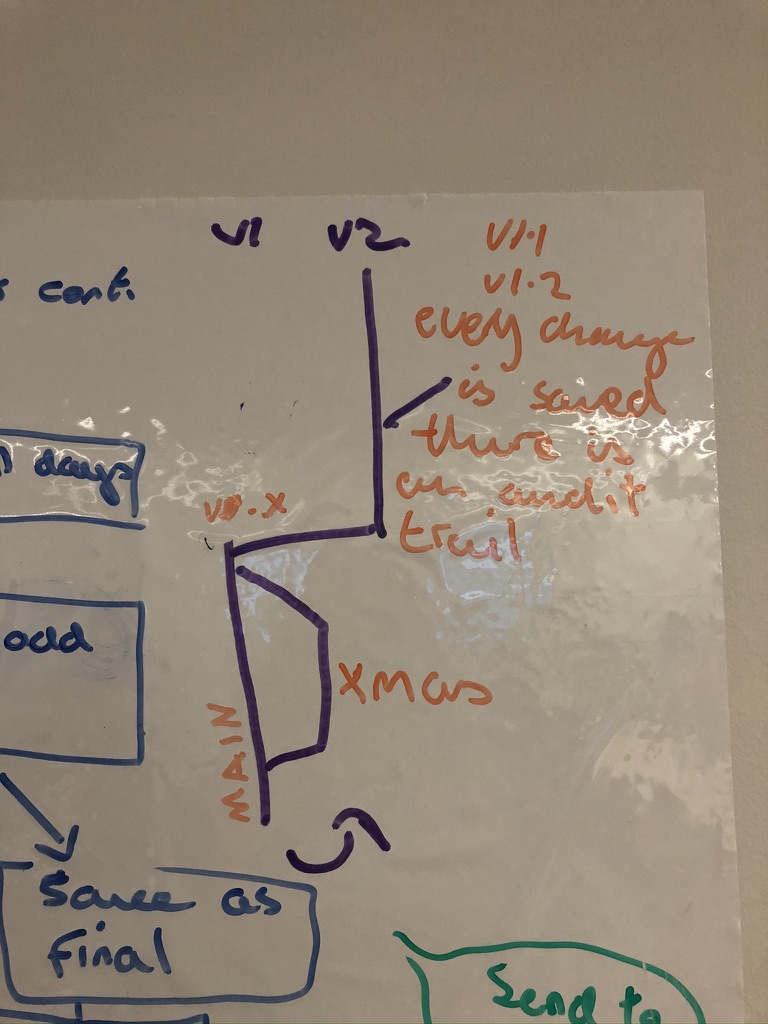 V1 V2 V1.1
V1.2
cont.
every change
is saved
days
there is
an audit
trail
add
XMas
MAIN
Save as
final
Send to